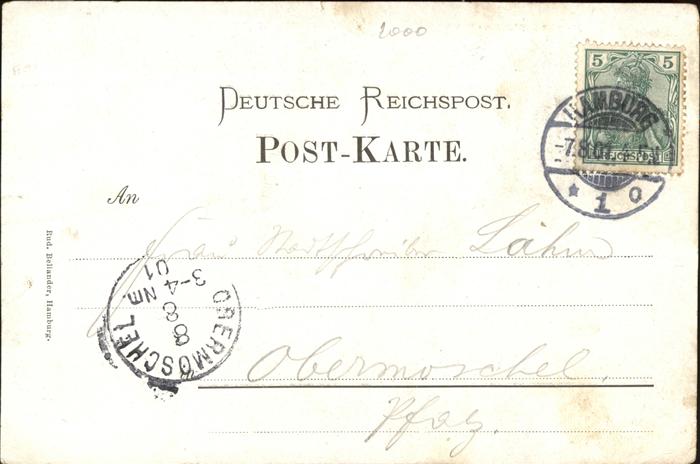 2000
5 5
REICHSPOST
HAMBURG
-7.8.01
* 1 O
DEUTSCHE REICHSPOST.
POST-KARTE.
An
Frau Stadtschreiber Lahm
OBERMOSCHEL
8 8
3-4 NM
01
Obermoschel.
Pfalz.
Rud. Bellander, Hamburg.